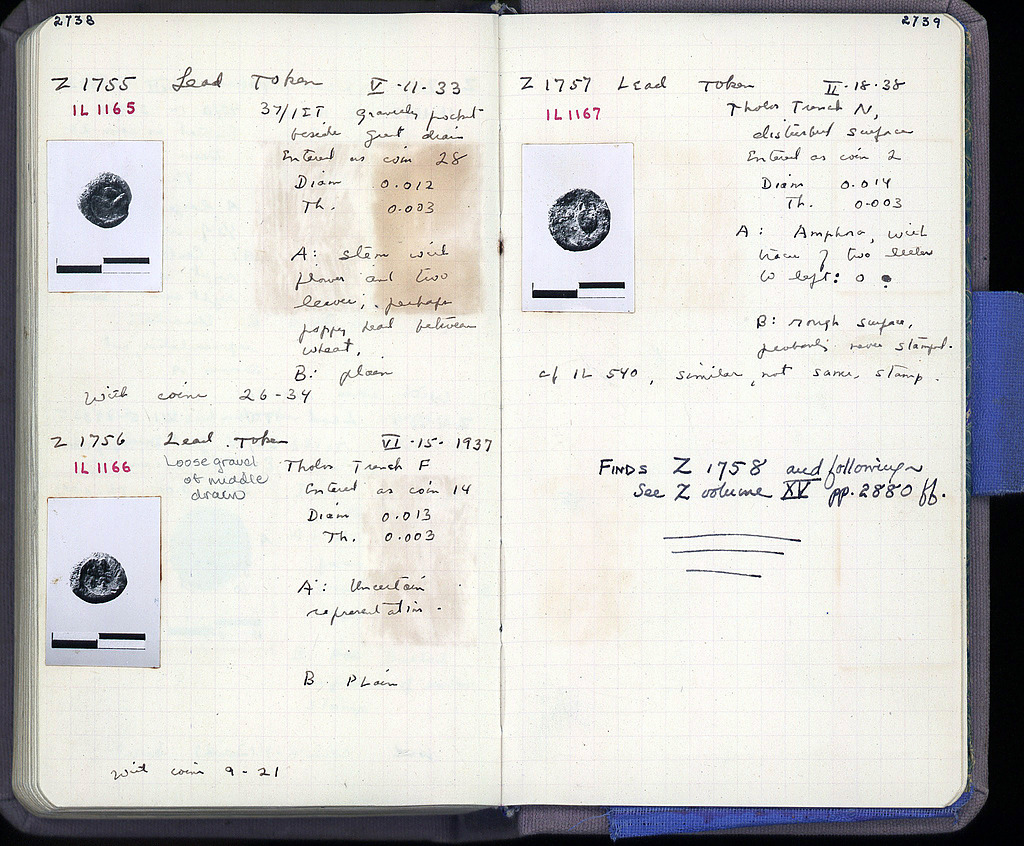 2738
Z 1755 Lead Token V-11-33
IL 1165
37/ΙΣΤ gravelly pocket
beside great drain
Entered as coin 28
Diam 0.012
Th. 0.003
A: stem with
flower and two
leaves; perhaps
poppy head between
wheat.
B: plain
with coins 26-34
Z 1756 Lead Token VI-15-1937
IL 1166
Loose gravel
of middle
drain
Tholos Trench F
Entered as coin 14
Diam 0.013
Th. 0.003
A: Uncertain
representation.
B Plain
with coins 9-21
2739
Z 1757 Lead Token II-18-38
IL 1167
Tholos Trench N,
disturbed surface
Entered as coin 2
Diam 0.014
Th. 0.003
A: Amphora, with
trace of two letters
to left: o
B: rough surface,
probably never stamped.
cf IL 540, similar, not same, stamp.
FINDS Z 1758 and following
See Z volume XV pp. 2880 ff.